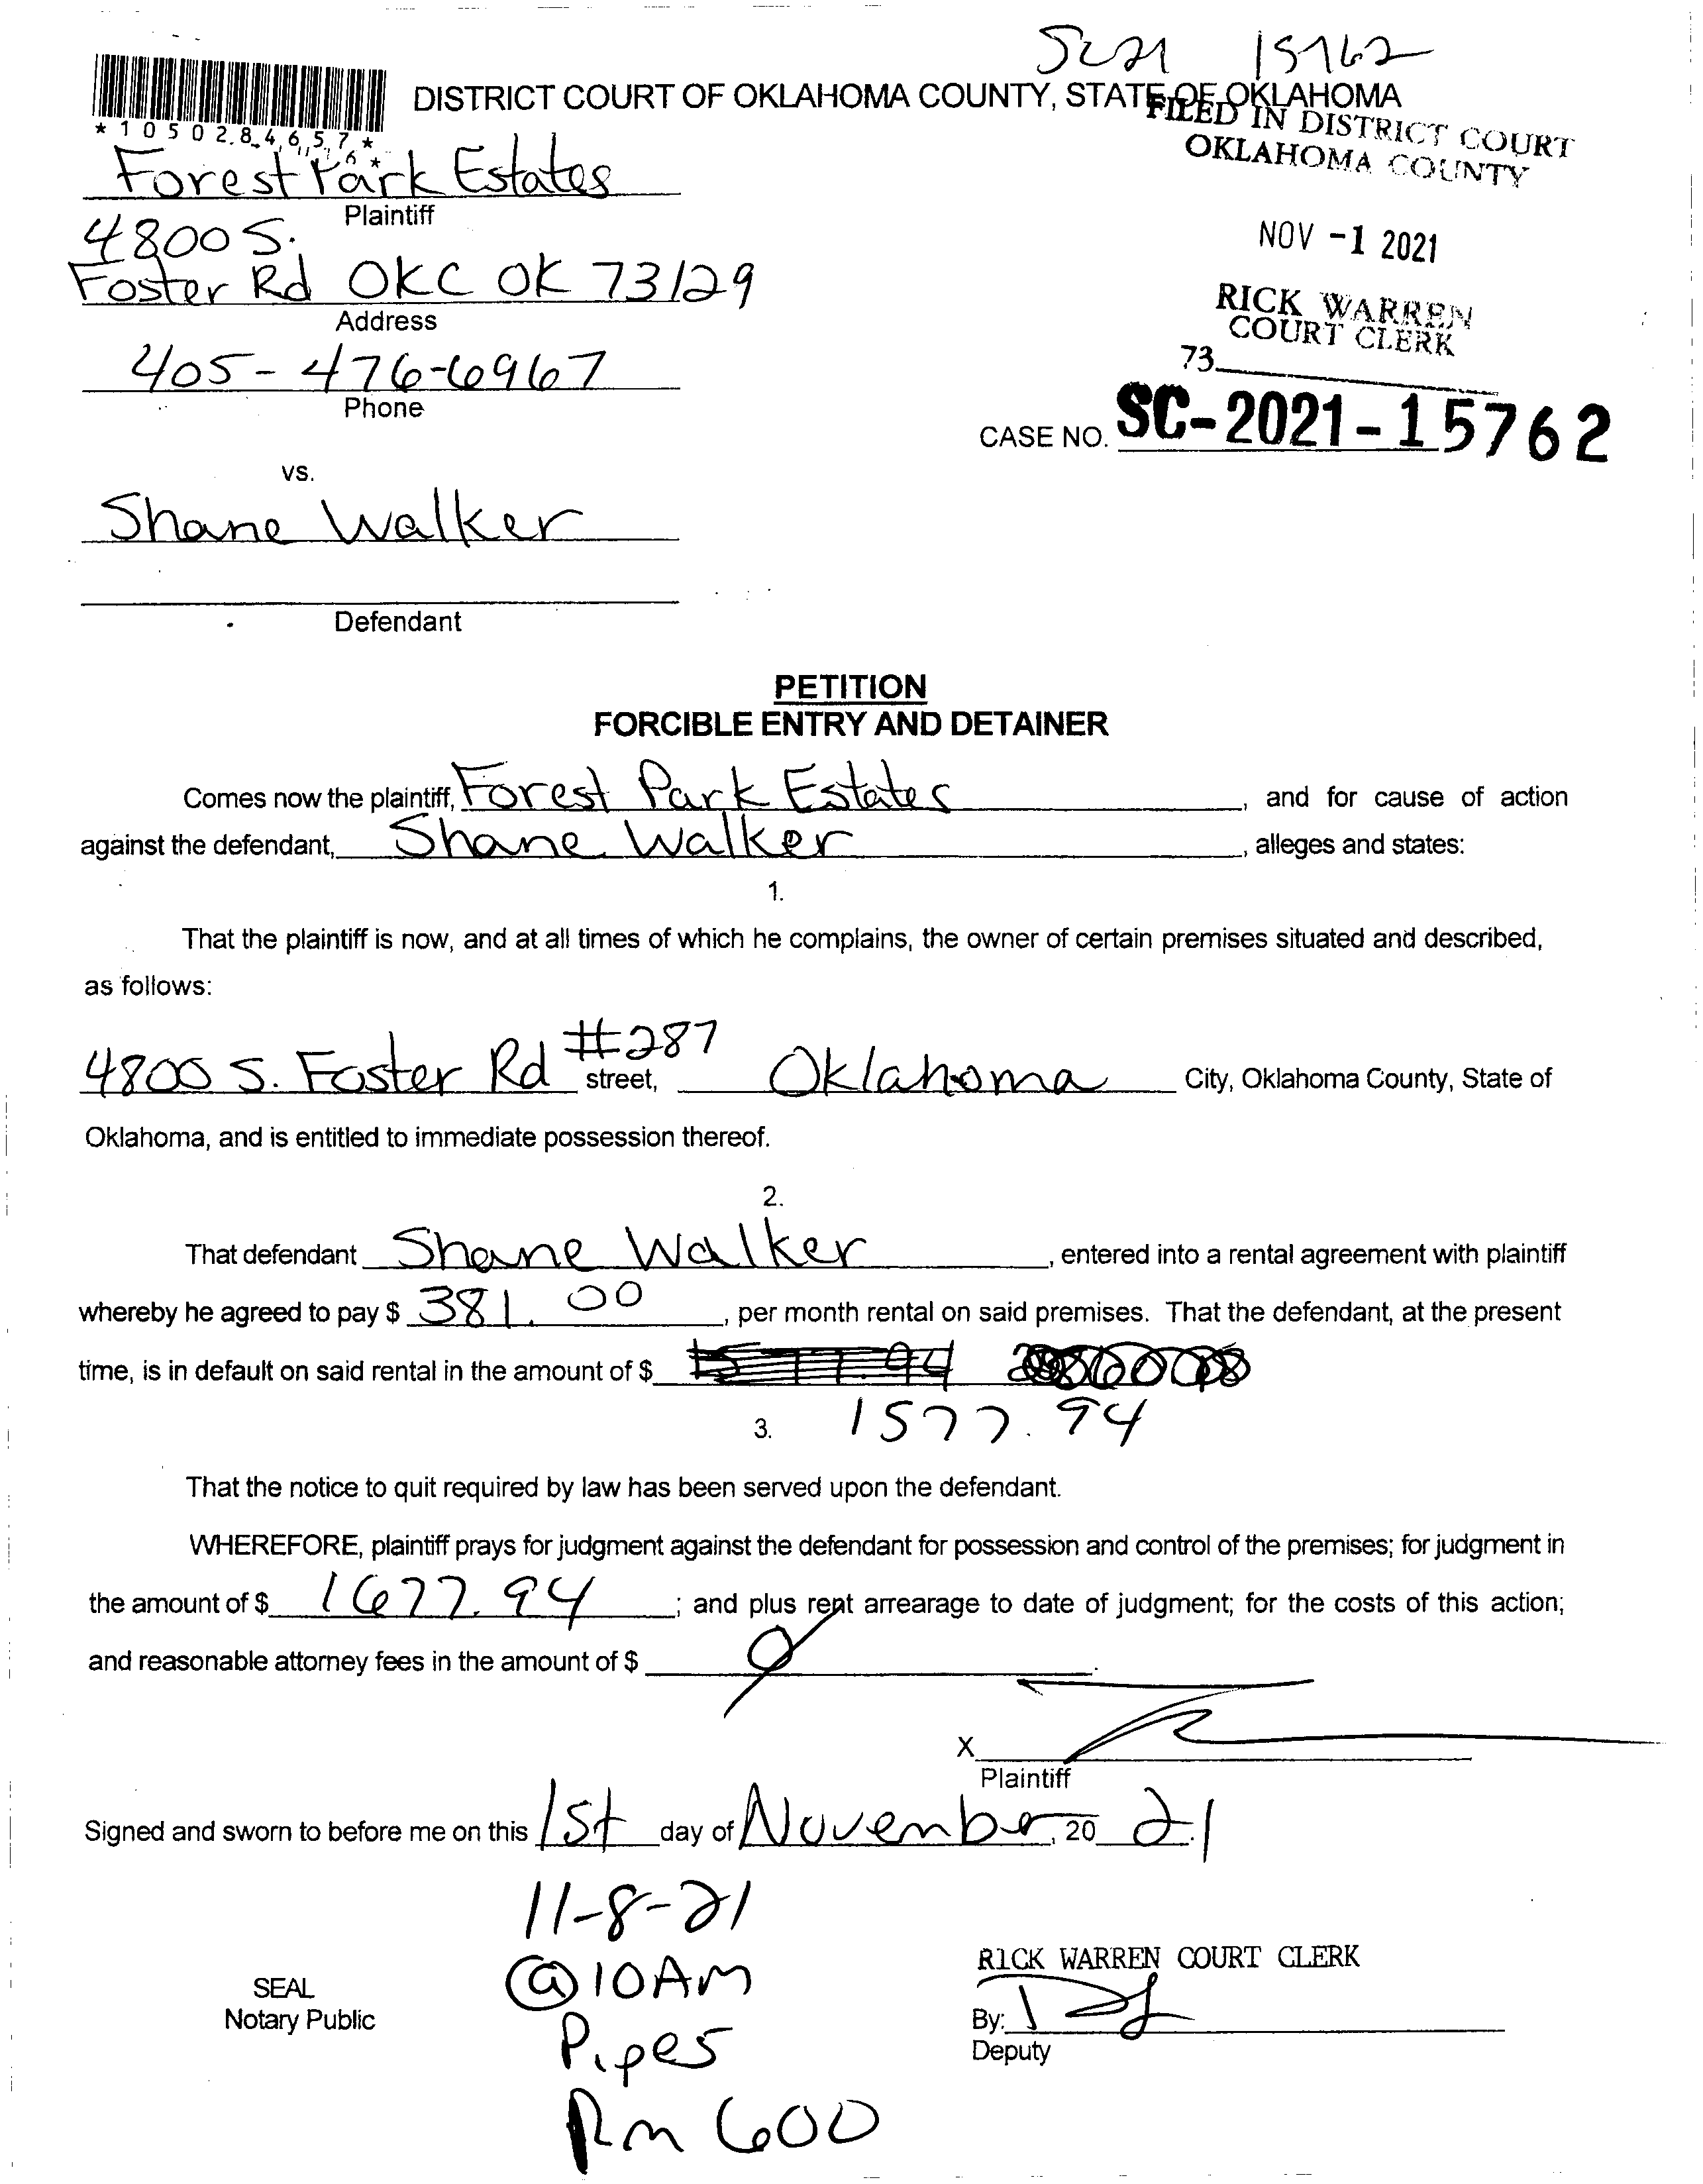 SC21 15762
DISTRICT COURT OF OKLAHOMA COUNTY, STATE OF OKLAHOMA
FILED IN DISTRICT COURT
OKLAHOMA COUNTY
* 1 0 5 0 2 8 4 6 5 7 6 *
Forest Park Estates
Plaintiff
4800 S.
Foster Rd OKC OK 73129
Address
405-476-6967
Phone
NOV -1 2021
RICK WARREN
COURT CLERK
73
CASE NO. SC-2021-15762
vs.
Shane Walker
Defendant
PETITION
FORCIBLE ENTRY AND DETAINER
Comes now the plaintiff, Forest Park Estates, and for cause of action
against the defendant, Shane Walker, alleges and states:
1.
That the plaintiff is now, and at all times of which he complains, the owner of certain premises situated and described,
as follows:
4800 S. Foster Rd #287 street, Oklahoma City, Oklahoma County, State of
Oklahoma, and is entitled to immediate possession thereof.
2.
That defendant Shane Walker, entered into a rental agreement with plaintiff
whereby he agreed to pay $ 381.00, per month rental on said premises. That the defendant, at the present
time, is in default on said rental in the amount of $
3. 1577.94
That the notice to quit required by law has been served upon the defendant.
WHEREFORE, plaintiff prays for judgment against the defendant for possession and control of the premises; for judgment in
the amount of $ 1677.94; and plus rent arrearage to date of judgment; for the costs of this action;
and reasonable attorney fees in the amount of $ 0.
X
Plaintiff
Signed and sworn to before me on this 1st day of November, 20 21.
11-8-21
@10AM
Pipes
Rm 600
SEAL
Notary Public
RICK WARREN COURT CLERK
By:
Deputy